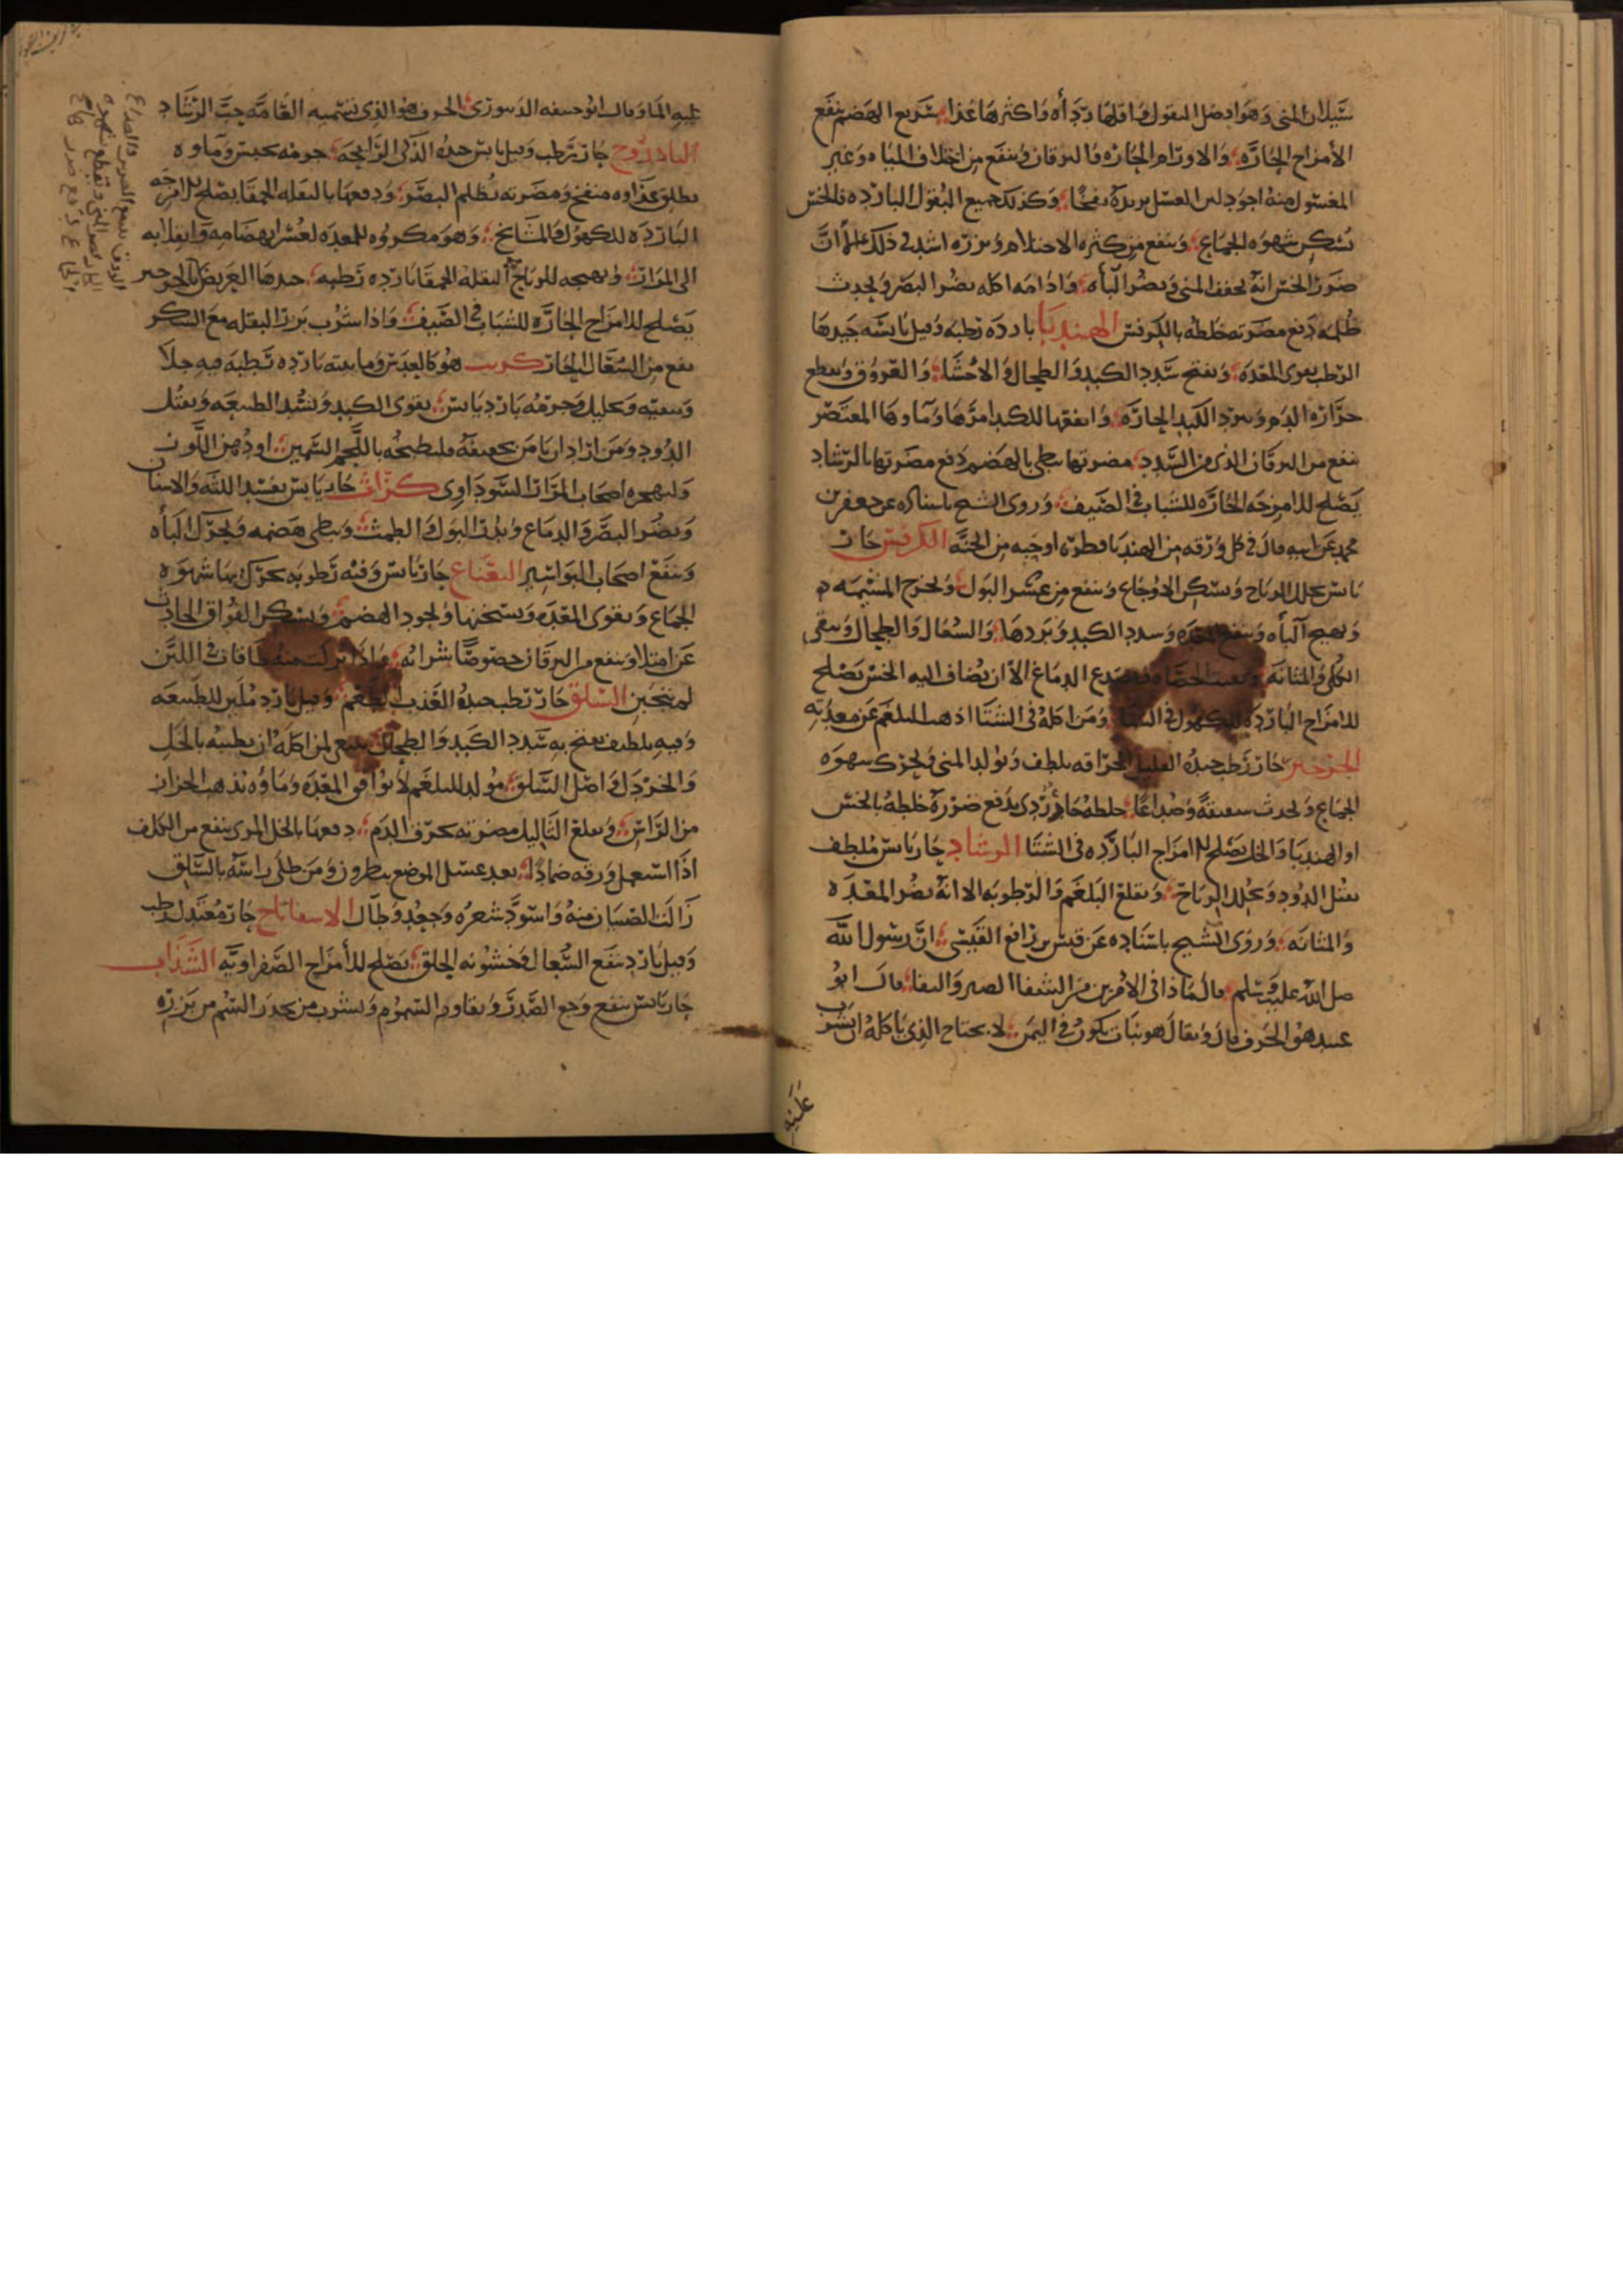 سيلان المنى وهو افضل البقول واقلها رداه واكثرها غذا سريع الهضم ينفع
الأمزاج الحاره والاورام الحاره واليرقان وينفع من اختلاف المياه وغير
المغسول منه اجود لان الغسل يزيده نفخًا وكذلك جميع البقول البارده فالخس
يسكن شهوه الجماع وينفع من كثره الاحتلام وبزره اشد في ذلك الا ان
ضرر الخس انه يجفف المنى ويضر الباه واذامه اكله يضر البصر ويحدث
ظلمه دفع مضرته خلطه بالكرفس الهندبا بارده رطبه وقيل يابسه جيدها
الرطب يقوى المعده ويفتح سدد الكبد والطحال والاحشا والعروق ويقطع
حراره الدم ويبرد الكبد الحاره وانفعها للكبد امرها وماوها المعتصر
ينفع من اليرقان الذى من السدد مضرتها تبطى بالهضم دفع مضرتها بالرشاد
يصلح للامزجه الحاره للشباب في الصيف وروى الشيخ باسناده عن جعفر بن
محمد عن ابيه قال في كل ورقه من الهندبا قطره او حبه من الجنه الكرفس حار
يابس يحلل الرياح ويسكن الاوجاع وينفع من عسر البول ويخرج المشيمه
ويهيج الباه وينفع المعده وسدد الكبد وبردها والسعال والطحال وينقى
الكلى والمثانه ويفتت الحصاه ويصدع الدماغ الا ان يضاف اليه الخس يصلح
للامزاج البارده للكهول في الشتا ومن اكله في الشتا اذهب البلغم عن معدته
الجرجير حار رطب جيده القليل الحراقه يلطف ويولد المنى ويحرك شهوه
الجماع ويحدث شقيقهً وصداعًا خلطه حار ردى يدفع ضرره خلطه بالخس
او الهندبا والخل يصلح للامزاج البارده في الشتا الرشاد حار يابس ملطف
يقتل الدود ويحلل الرياح ويقلع البلغم والرطوبه الا انه يضر المعده
والمثانه وروى الشيخ باسناده عن قيس بن رافع القيسى ان رسول الله
صلى الله عليه وسلم قال ماذا في الامرين من الشفا الصبر والثفا قال ابو
عبيد هو الحرف قال ويقال هو نبات يكون في اليمن لا يحتاج الذى ياكله ان يشرب
عليه
عليه الما وقال ابو حنيفه الدينورى الحرف هو الذى تسميه العامه حب الرشاد
الباذروج حار رطب وقيل يابس جيده الذكى الرايحه جرمه يحبس وماوه
يطلق غذاوه منفخ ومضرته تظلم البصر ودفعها بالبقله الحمقا يصلح للامزجه
البارده للكهول والمشايخ وهو مكروه للمعده لعسر انهضامه وانقلابه
الى المرار وتهييجه للرياح البقله الحمقا بارده رطبه جيدها العريض
يصلح للامزاج الحاره للشباب في الصيف واذا شرب بزر البقله مع السكر
نفع من السعال الحار هو كالعدس ومايته بارده رطبه فيه جلا
وتنقيه وتحليل وجرمه بارد يابس يقوى الكبد ويشد الطبيعه ويقتل
الدود ومن اراد ان يامن تجفيفه فليطبخه باللحم السمين او دهن اللون
وليهجره اصحاب المرار السوداوى كراث حار يابس يفسد اللثه والاسنان
ويضر البصر والدماغ ويدر البول والطمث ويبطى هضمه ويحرك الباه
وينفع اصحاب البواسير النعناع حار يابس وفيه رطوبه يحرك بها شهوه
الجماع ويقوى المعده ويسخنها ويجود الهضم ويسكن الفواق الحادث
عن امتلا وينفع من اليرقان خصوصًا شرابه واذا تركت منه طاقات في اللبن
لم يتجبن السلق حار رطب جيده العذب الطعم وقيل بارد ملين للطبيعه
وفيه تلطيف يفتح به سدد الكبد والطحال ينبغى لمن اكله ان يطيبه بالخل
والخردل واصل السلق مولد للبلغم لا يوافق المعده وماوه يذهب الحزاز
من الراس ويقلع الثاليل مضرته يحرق الدم دفعها بالخل المرى ينفع من الكلف
اذا استعمل ورقه ضمادًا بعد غسل الموضع بنطرون ومن طلى راسه بالسلق
زالت الصيبان منه واسود شعره وجعد وطال الاسفاناخ حار معتدل رطب
وقيل بارد ينفع السعال وخشونه الحلق يصلح للأمزاج الصفراويه السذاب
حار يابس ينفع وجع الصدر ويقاوم السموم ويشرب من بحدر السم من بزره